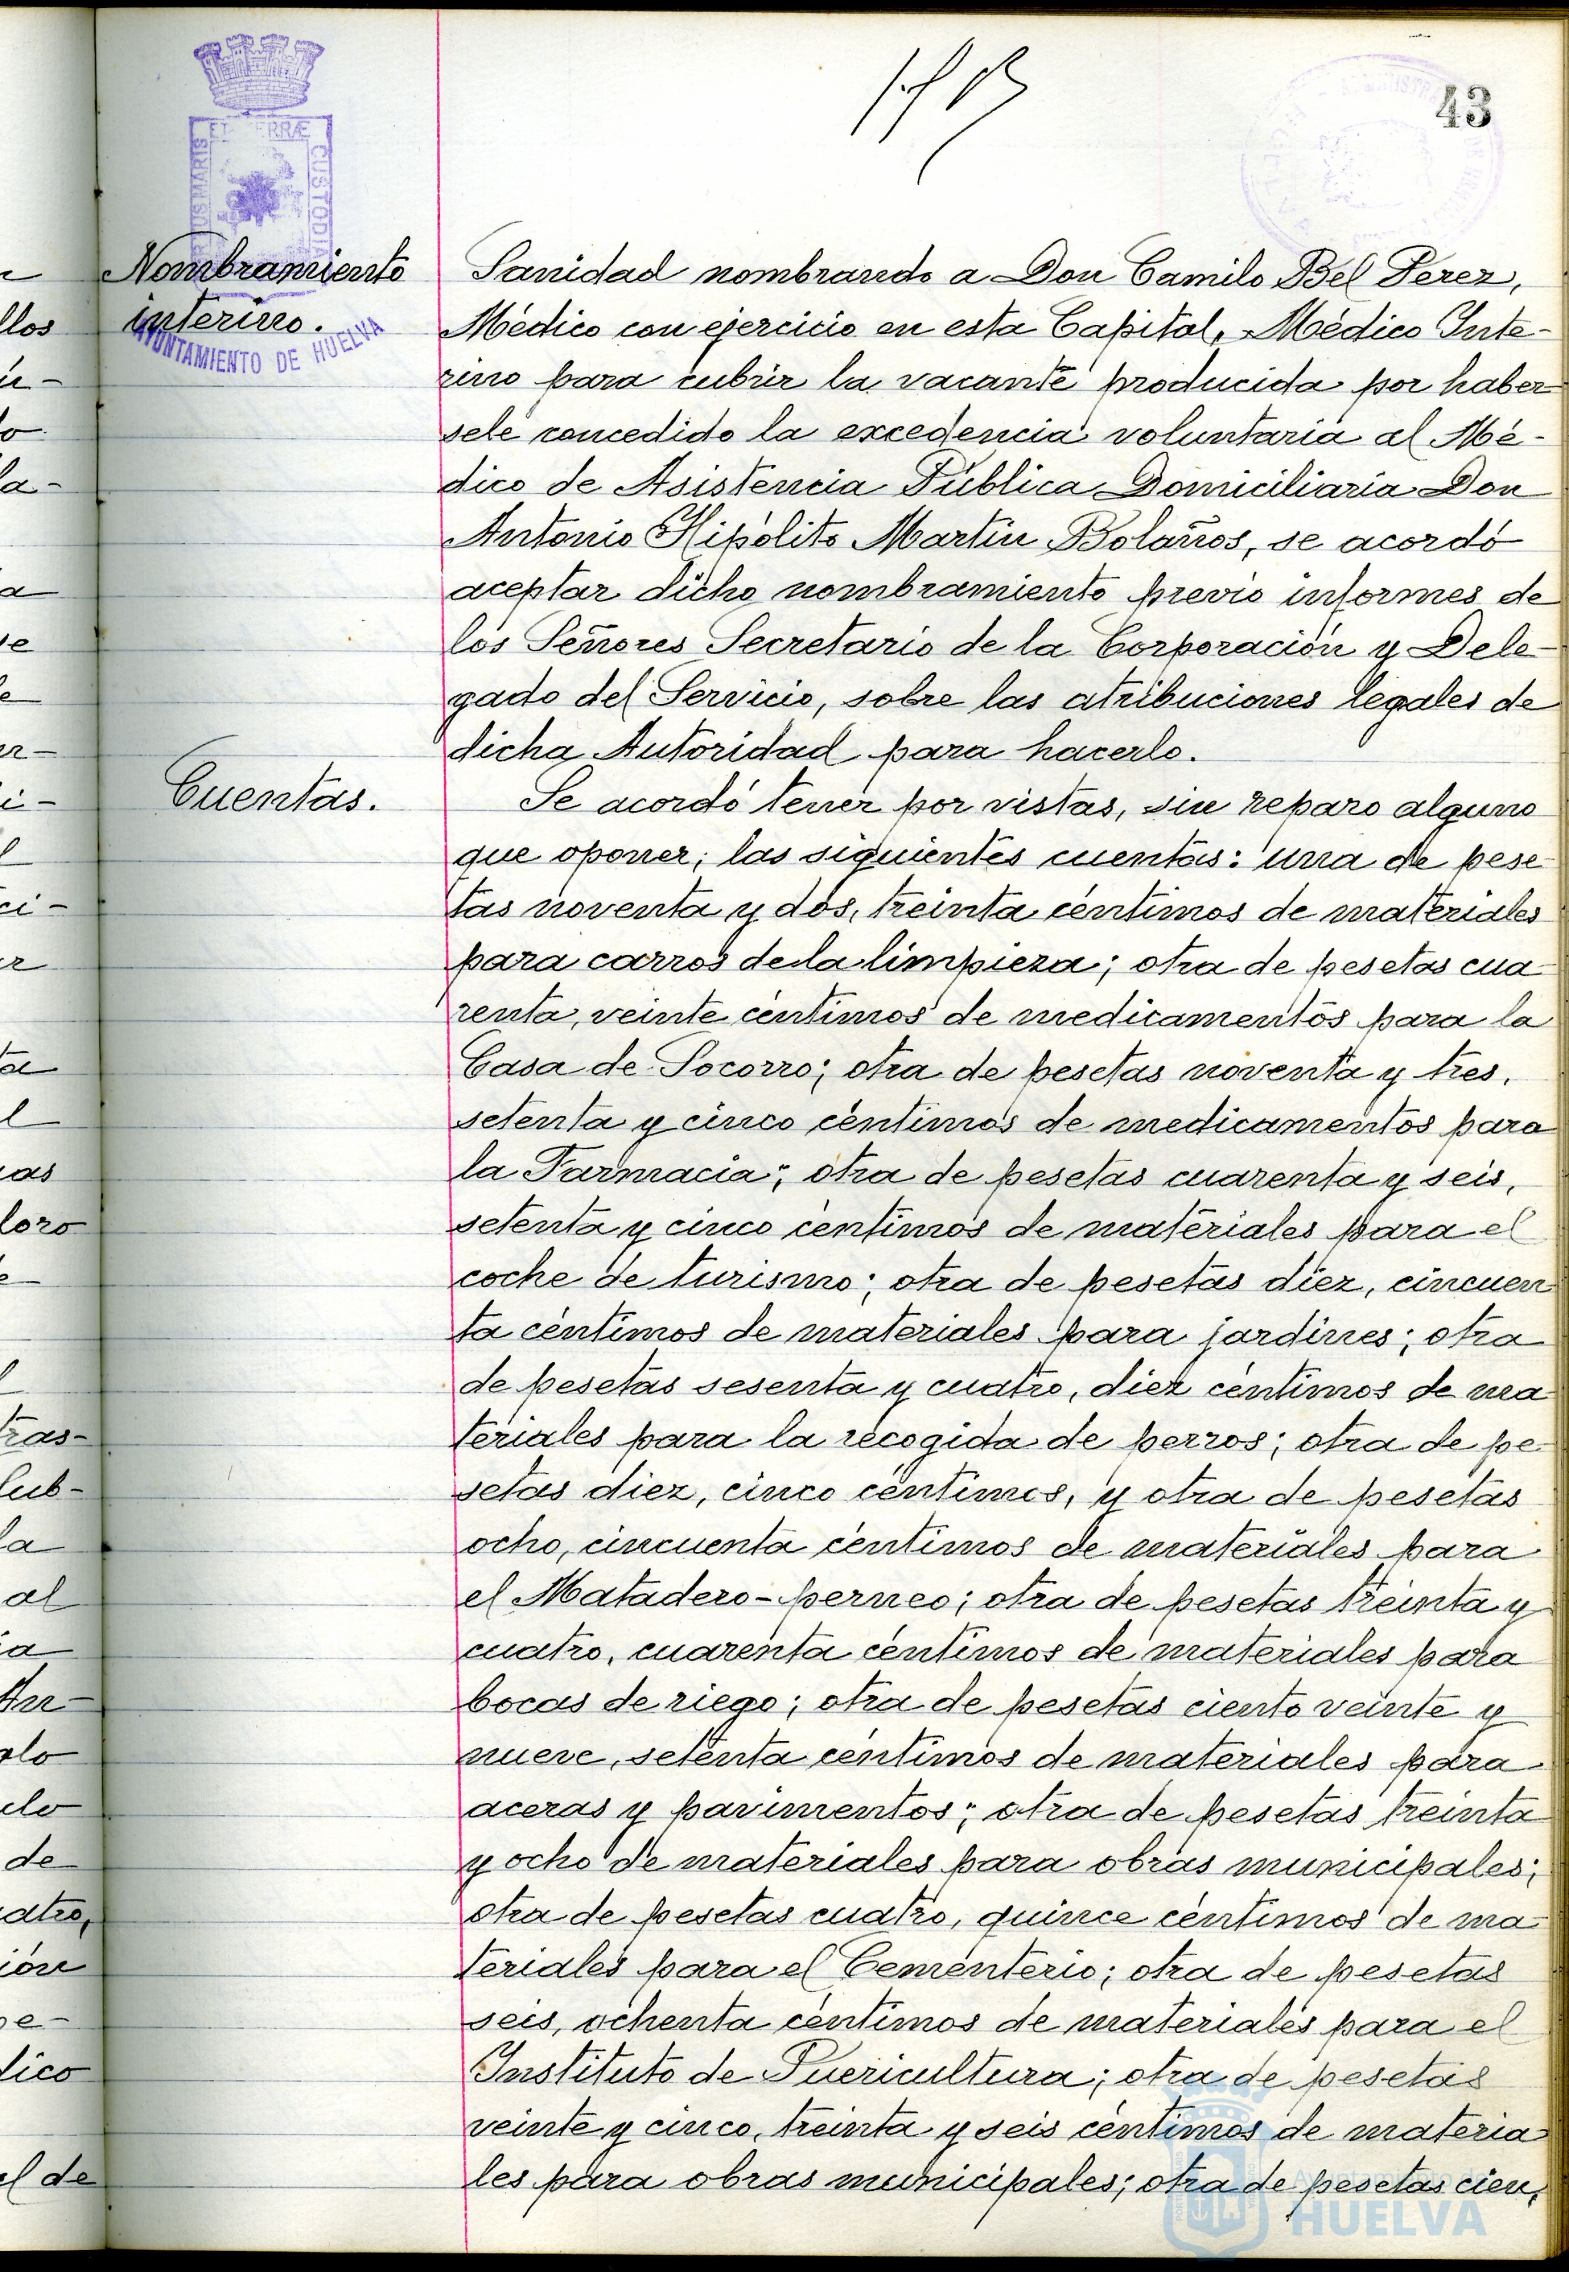 43
Nombramiento
interino.
AYUNTAMIENTO DE HUELVA
Sanidad nombrando a Don Camilo Bel Perez,
Médico con ejercicio en esta Capital, Médico Inte-
rino para cubrir la vacante producida por haber-
sele concedido la excedencia voluntaria al Mé-
dico de Asistencia Pública Domiciliaria Don
Antonio Hipólito Martín Bolaños, se acordó
aceptar dicho nombramiento previo informes de
los Señores Secretario de la Corporación y Dele-
gado del Servicio, sobre las atribuciones legales de
dicha Autoridad para hacerlo.
Cuentas.
Se acordó tener por vistas, sin reparo alguno
que oponer, las siguientes cuentas: una de pese-
tas noventa y dos, treinta céntimos de materiales
para carros de la limpieza; otra de pesetas cua-
renta, veinte céntimos de medicamentos para la
Casa de Socorro; otra de pesetas noventa y tres,
setenta y cinco céntimos de medicamentos para
la Farmacia; otra de pesetas cuarenta y seis,
setenta y cinco céntimos de materiales para el
coche de turismo; otra de pesetas diez, cincuen-
ta céntimos de materiales para jardines; otra
de pesetas sesenta y cuatro, diez céntimos de ma-
teriales para la recogida de perros; otra de pe-
setas diez, cinco céntimos, y otra de pesetas
ocho, cincuenta céntimos de materiales para
el Matadero-perneo; otra de pesetas treinta y
cuatro, cuarenta céntimos de materiales para
bocas de riego; otra de pesetas ciento veinte y
nueve, setenta céntimos de materiales para
aceras y pavimentos; otra de pesetas treinta
y ocho de materiales para obras municipales;
otra de pesetas cuatro, quince céntimos de ma-
teriales para el Cementerio; otra de pesetas
seis, ochenta céntimos de materiales para el
Instituto de Puericultura; otra de pesetas
veinte y cinco, treinta y seis céntimos de materia-
les para obras municipales; otra de pesetas cien,
HUELVA